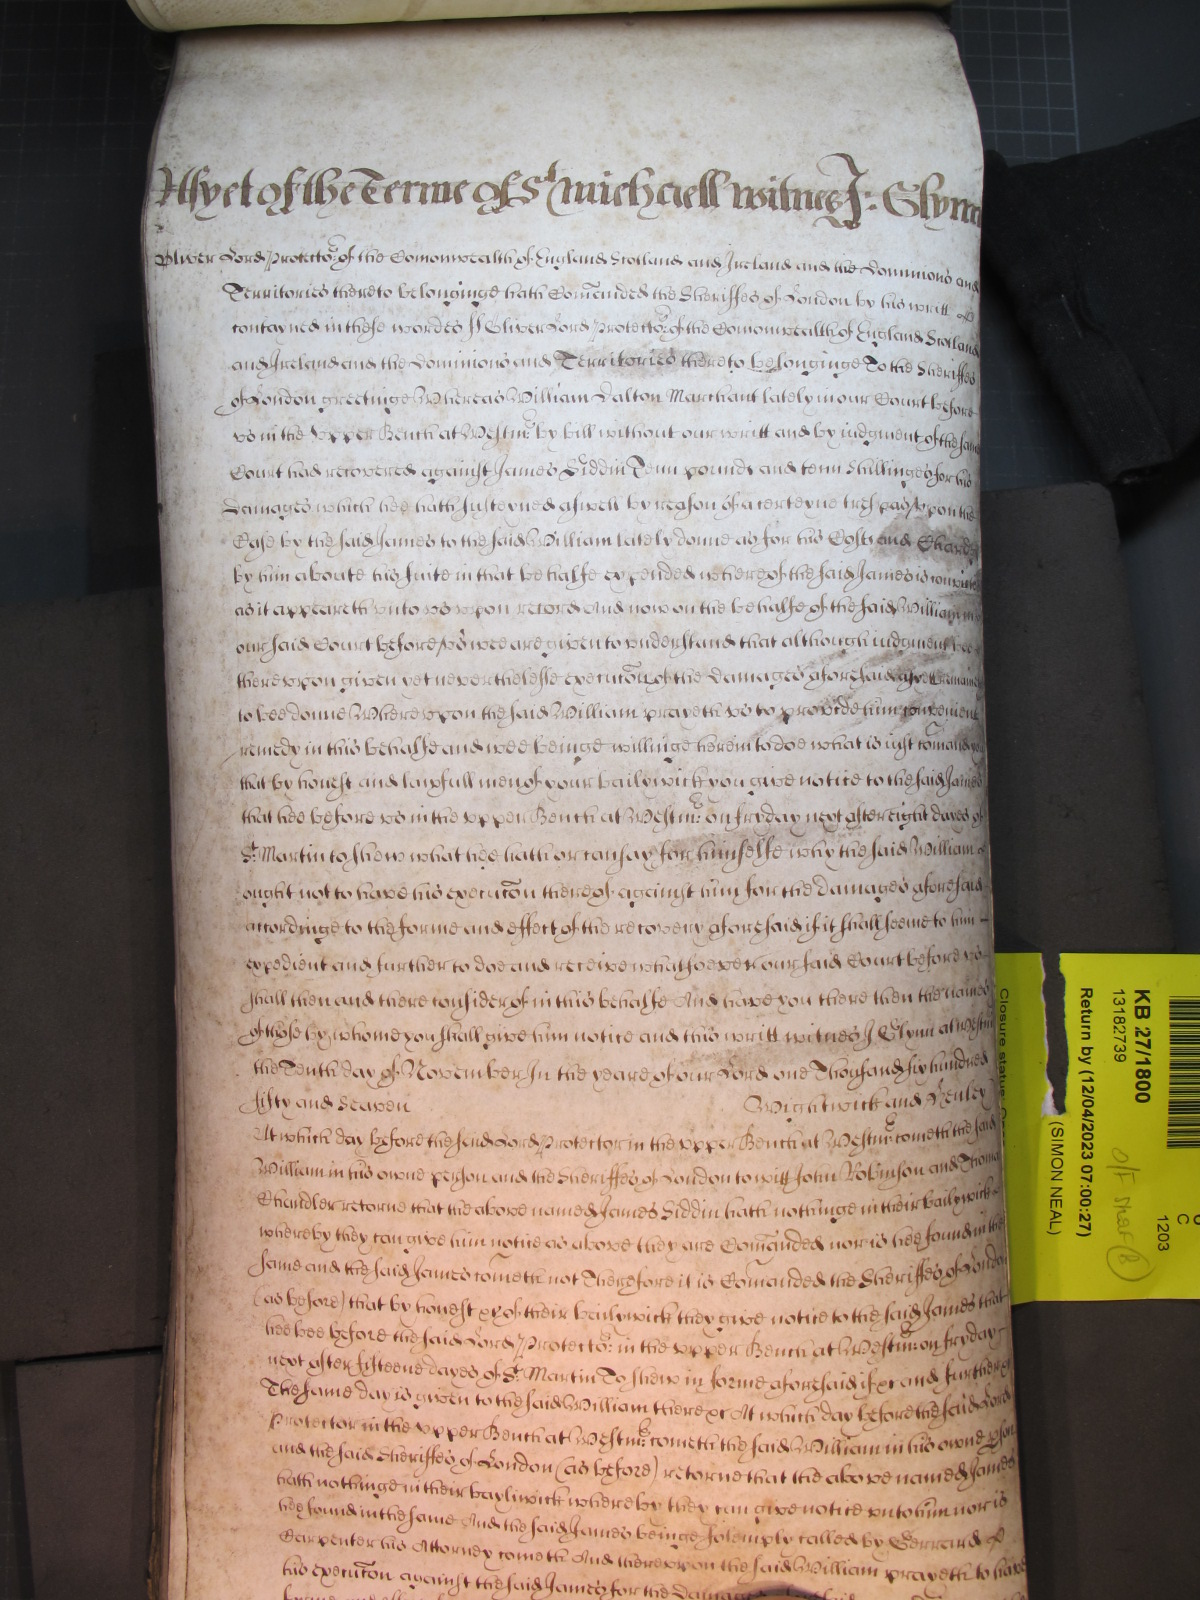 As yet of the Terme of St Michaell witnes J: Glynn
Oliver Lord Protector of the Comonwealth of England Scotland and Ireland and the Dominions and
Territories thereto belonginge hath Comanded the Sheriffes of London by his writt
contayned in these wordes ss Oliver Lord Protector of the Comonwealth of England Scotland
and Ireland and the Dominions and Territories thereto belonginge To the Sheriffes
of London greetinge Whereas William Dalton Marchant lately in our Court before
vs in the vpper Bench at Westmr by bill without our writt and by iudgment of the same
Court had recovered against James Siddin Tenn pounds and tenn Shillinges for his
Damages which hee hath susteyned aswell by reason of a certeyne trespas vpon the
Case by the said James to the said William lately donne as for his Costs and Chardges
by him aboute his suite in that behalfe expended whereof the said James is convicted
as it appeareth vnto vs vpon record And now on the behalfe of the said William in
our said Court before vs wee are given to vnderstand that although iudgment bee
therevpon given yet neverthelesse execucon of the damages aforesaid yet remaines
to bee donne Wherevpon the said William prayeth vs to provide him convenient
remedy in this behalfe and wee beinge willinge herein to doe what is iust comand you
that by honest and lawfull men of your bailywick you give notice to the said James
that hee before vs in the vpper Bench at Westmr on fryday next after eight dayes of
St Martin to shew what hee hath or can say for himselfe why the said William
ought not to have his execucon thereof against him for the damages aforesaid
accordinge to the forme and effect of the recovery aforesaid if it shall seeme to him
expedient and further to doe and receive whatsoever our said Court before vs
shall then and there consider of in this behalfe And have you there then the names
of those by whome you shall give him notice and this writt witnes J Glynn at Westmr
the Tenth day of November In the yeare of our Lord one Thousand six hundred
fifty and Seaven Wightwick and Henley
At which day before the said Lord Protector in the vpper Bench at Westmr cometh the said
William in his owne person and the Sheriffes of London to witt John Robinson and Thomas
Chandler retorne that the above named James Siddin hath nothinge in their bailywick
whereby they can give him notice as above they are Comanded nor is hee found in the
same and the said James cometh not Therefore it is Comanded the Sheriffes of London
(as before) that by honest &c of their bailywick they give notice to the said James that
hee bee before the said Lord Protector in the vpper Bench at Westmr on fryday
next after fifteene dayes of St Martin To shew in forme aforesaid if &c and further &c
The same day is given to the said William there &c At which day before the said Lord
Protector in the vpper Bench at Westmr cometh the said William in his owne pson
and the said Sheriffes of London (as before) retorne that the above named James
hath nothinge in their bayliwick whereby they can give notice vnto him nor is
hee found in the same And the said James beinge solemply called by Gerrard
Carpenter his Attorney cometh And therevpon the said William prayeth to have
his execucon against the said James for the Damages
KB 27/1800
13182739
Return by (12/04/2023 07:00:27)
(SIMON NEAL)
Closure status:
C
1203